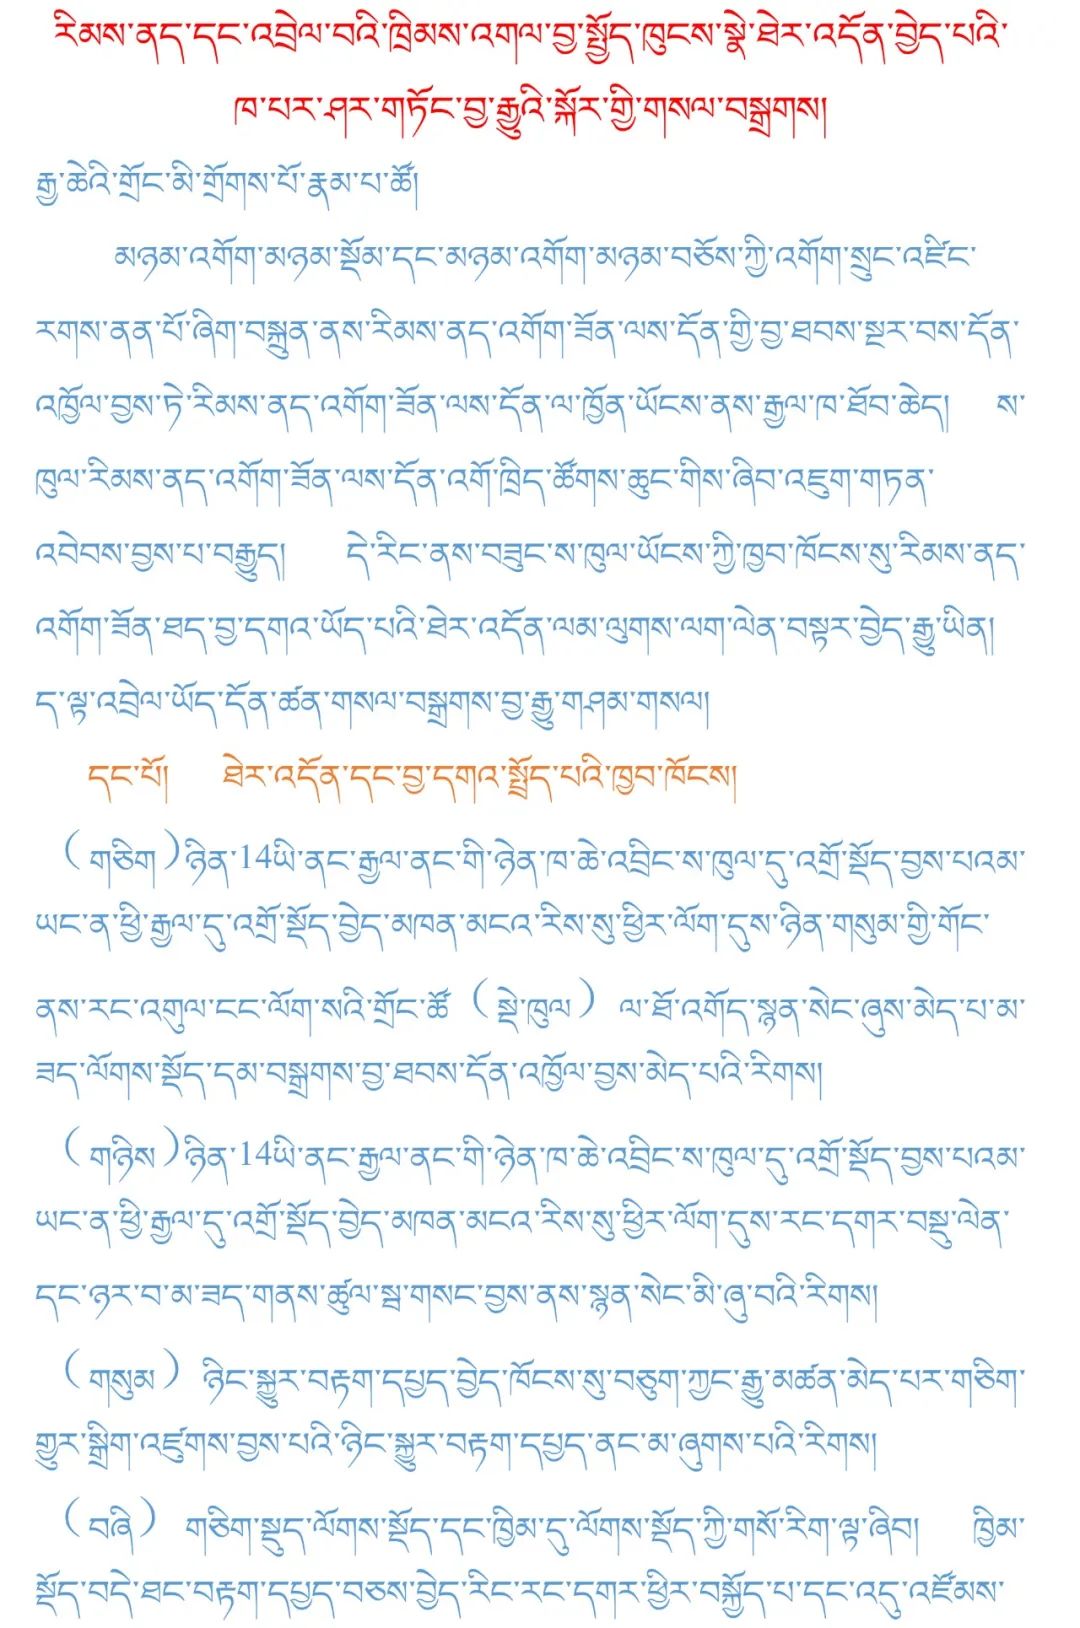 རིམས་ནད་དང་འབྲེལ་བའི་ཁྲིམས་འགལ་བྱ་སྤྱོད་ཁུངས་སྣེ་ཐེར་འདོན་བྱེད་པའི་
ཁ་པར་ཤར་གཏོང་བྱ་རྒྱུའི་སྐོར་གྱི་གསལ་བསྒྲགས།
རྒྱ་ཆེའི་གྲོང་མི་གྲོགས་པོ་རྣམ་པ་ཚོ།
མཉམ་འགོག་མཉམ་སྡོམ་དང་མཉམ་འགོག་མཉམ་བཅོས་ཀྱི་འགོག་སྲུང་འཛིང་
རགས་ནན་པོ་ཞིག་བསྐྲུན་ནས་རིམས་ནད་འགོག་ཟོན་ལས་དོན་གྱི་བྱ་ཐབས་སྔར་བས་དོན་
འཁྱོལ་བྱས་ཏེ་རིམས་ནད་འགོག་ཟོན་ལས་དོན་ལ་ཁྱོན་ཡོངས་ནས་རྒྱལ་ཁ་ཐོབ་ཆེད། ས་
ཁུལ་རིམས་ནད་འགོག་ཟོན་ལས་དོན་འགོ་ཁྲིད་ཚོགས་ཆུང་གིས་ཞིབ་འཇུག་གཏན་
འབེབས་བྱས་པ་བརྒྱུད། དེ་རིང་ནས་བཟུང་ས་ཁུལ་ཡོངས་ཀྱི་ཁྱབ་ཁོངས་སུ་རིམས་ནད་
འགོག་ཟོན་ཐད་བྱ་དགའ་ཡོད་པའི་ཐེར་འདོན་ལམ་ལུགས་ལག་ལེན་བསྟར་བྱེད་རྒྱུ་ཡིན།
ད་ལྟ་འབྲེལ་ཡོད་དོན་ཚན་གསལ་བསྒྲགས་བྱ་རྒྱུ་གཤམ་གསལ།
དང་པོ། ཐེར་འདོན་དང་བྱ་དགའ་སྤྲོད་པའི་ཁྱབ་ཁོངས།
（གཅིག）ཉིན་14ཡི་ནང་རྒྱལ་ནང་གི་ཉེན་ཁ་ཆེ་འབྲིང་ས་ཁུལ་དུ་འགྲོ་སྡོད་བྱས་པའམ་
ཡང་ན་ཕྱི་རྒྱལ་དུ་འགྲོ་སྡོད་བྱེད་མཁན་མངའ་རིས་སུ་ཕྱིར་ལོག་དུས་ཉིན་གསུམ་གྱི་གོང་
ནས་རང་འགུལ་ངང་ལོག་སའི་གྲོང་ཚོ（སྡེ་ཁུལ）ལ་ཐོ་འགོད་སྙན་སེང་ཞུས་མེད་པ་མ་
ཟད་ལོགས་སྡོད་དམ་བསྒྲགས་བྱ་ཐབས་དོན་འཁྱོལ་བྱས་མེད་པའི་རིགས།
（གཉིས）ཉིན་14ཡི་ནང་རྒྱལ་ནང་གི་ཉེན་ཁ་ཆེ་འབྲིང་ས་ཁུལ་དུ་འགྲོ་སྡོད་བྱས་པའམ་
ཡང་ན་ཕྱི་རྒྱལ་དུ་འགྲོ་སྡོད་བྱེད་མཁན་མངའ་རིས་སུ་ཕྱིར་ལོག་དུས་རང་དགར་བསྡུ་ལེན་
དང་ཉར་བ་མ་ཟད་གནས་ཚུལ་སྦ་གསང་བྱས་ནས་སྙན་སེང་མི་ཞུ་བའི་རིགས།
（གསུམ）ཉིང་སྐྱུར་བརྟག་དཔྱད་བྱེད་ཁོངས་སུ་བཅུག་ཀྱང་རྒྱུ་མཚན་མེད་པར་གཅིག་
གྱུར་སྒྲིག་འཛུགས་བྱས་པའི་ཉིང་སྐྱུར་བརྟག་དཔྱད་ནང་མ་ཞུགས་པའི་རིགས།
（བཞི）གཅིག་སྡུད་ལོགས་སྡོད་དང་ཁྱིམ་དུ་ལོགས་སྡོད་ཀྱི་གསོ་རིག་ལྟ་ཞིབ། ཁྱིམ་
སྡོད་བདེ་ཐང་བརྟག་དཔྱད་བཅས་བྱེད་རིང་རང་དགར་ཕྱིར་བསྐྱོད་པ་དང་འདུ་འཛོམས་